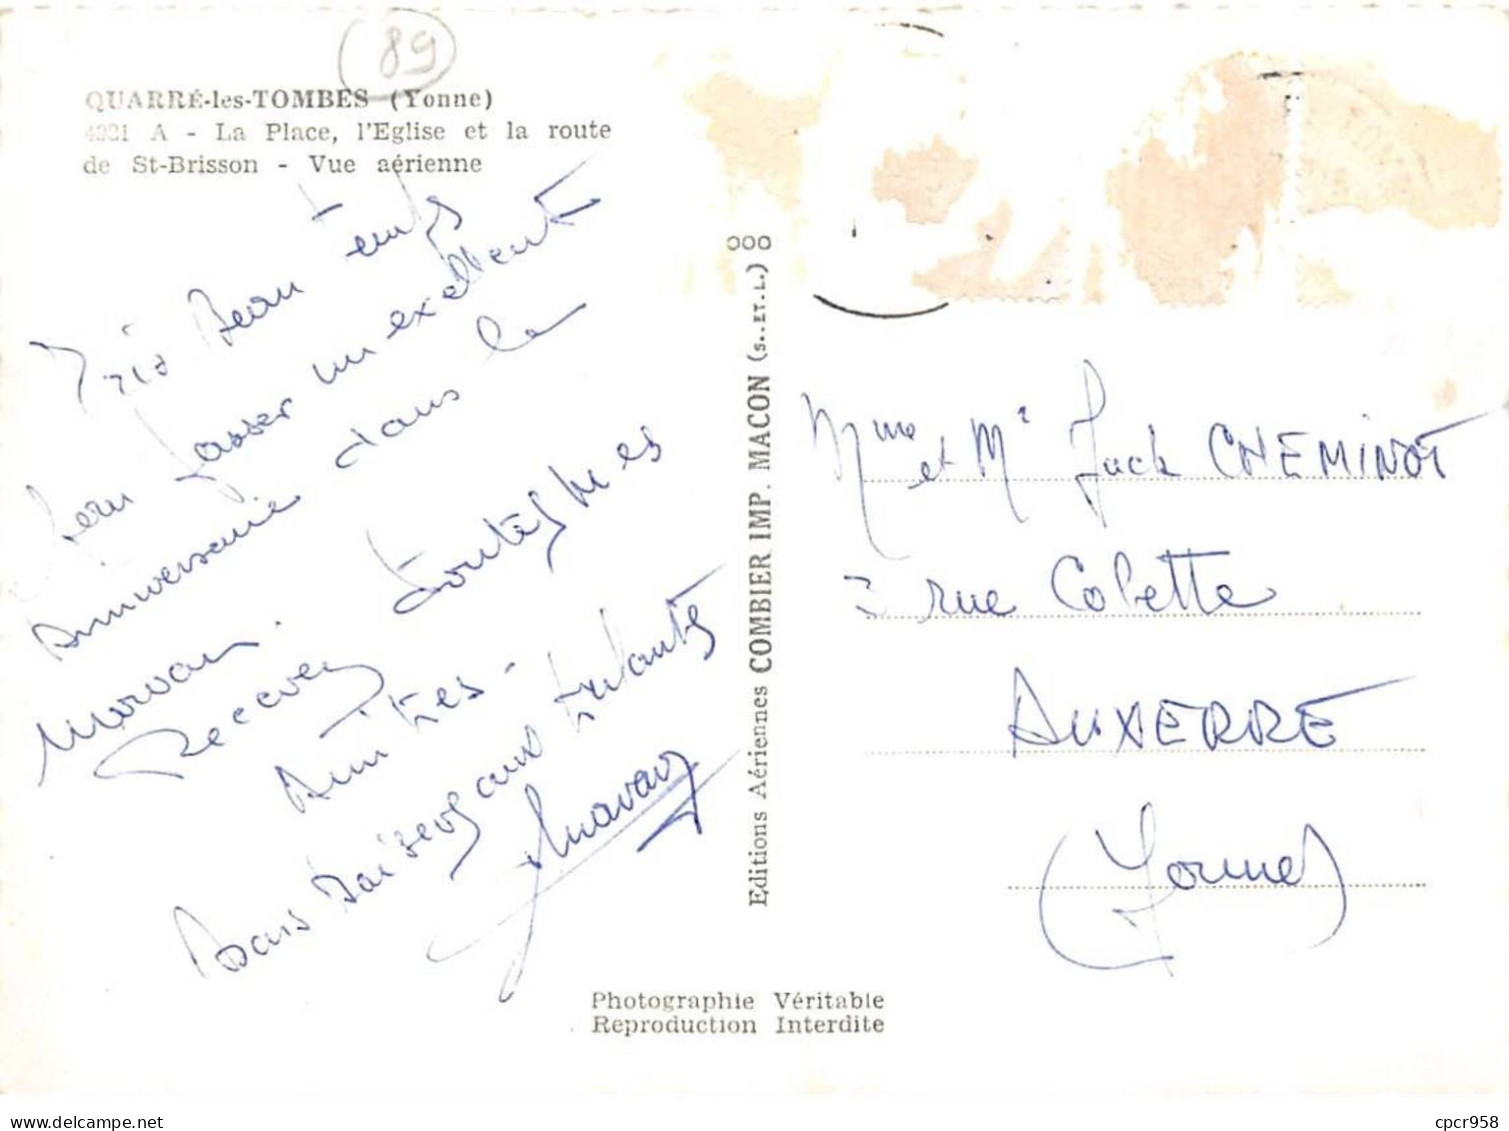 89
QUARRÉ-les-TOMBES (Yonne)
4221 A - La Place, l'Eglise et la route
de St-Brisson - Vue aérienne
Très Beau temps
pour passer un excellent
Anniversaire dans le
Morvan.
Recevez toutes mes
Amitiés -
Bons Baisers aux Enfants
Editions Aériennes COMBIER IMP. MACON (S.-ET-L.)
Mme et Mr Jack CHEMINOT
3 rue Colette
AUXERRE
(Yonne)
Photographie Véritable
Reproduction Interdite
delcampe.net
cpcr958